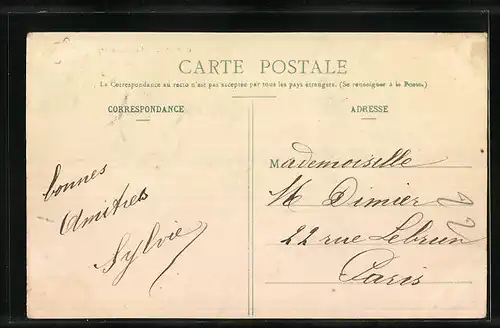 CARTE POSTALE
La Correspondance au recto n'est pas acceptée par tous les pays étrangers. (Se renseigner à la Poste.)
CORRESPONDANCE
ADRESSE
bonnes
Amitiés
Sylvie
Mademoiselle
M Dimier
22 rue Lebrun
Paris
22